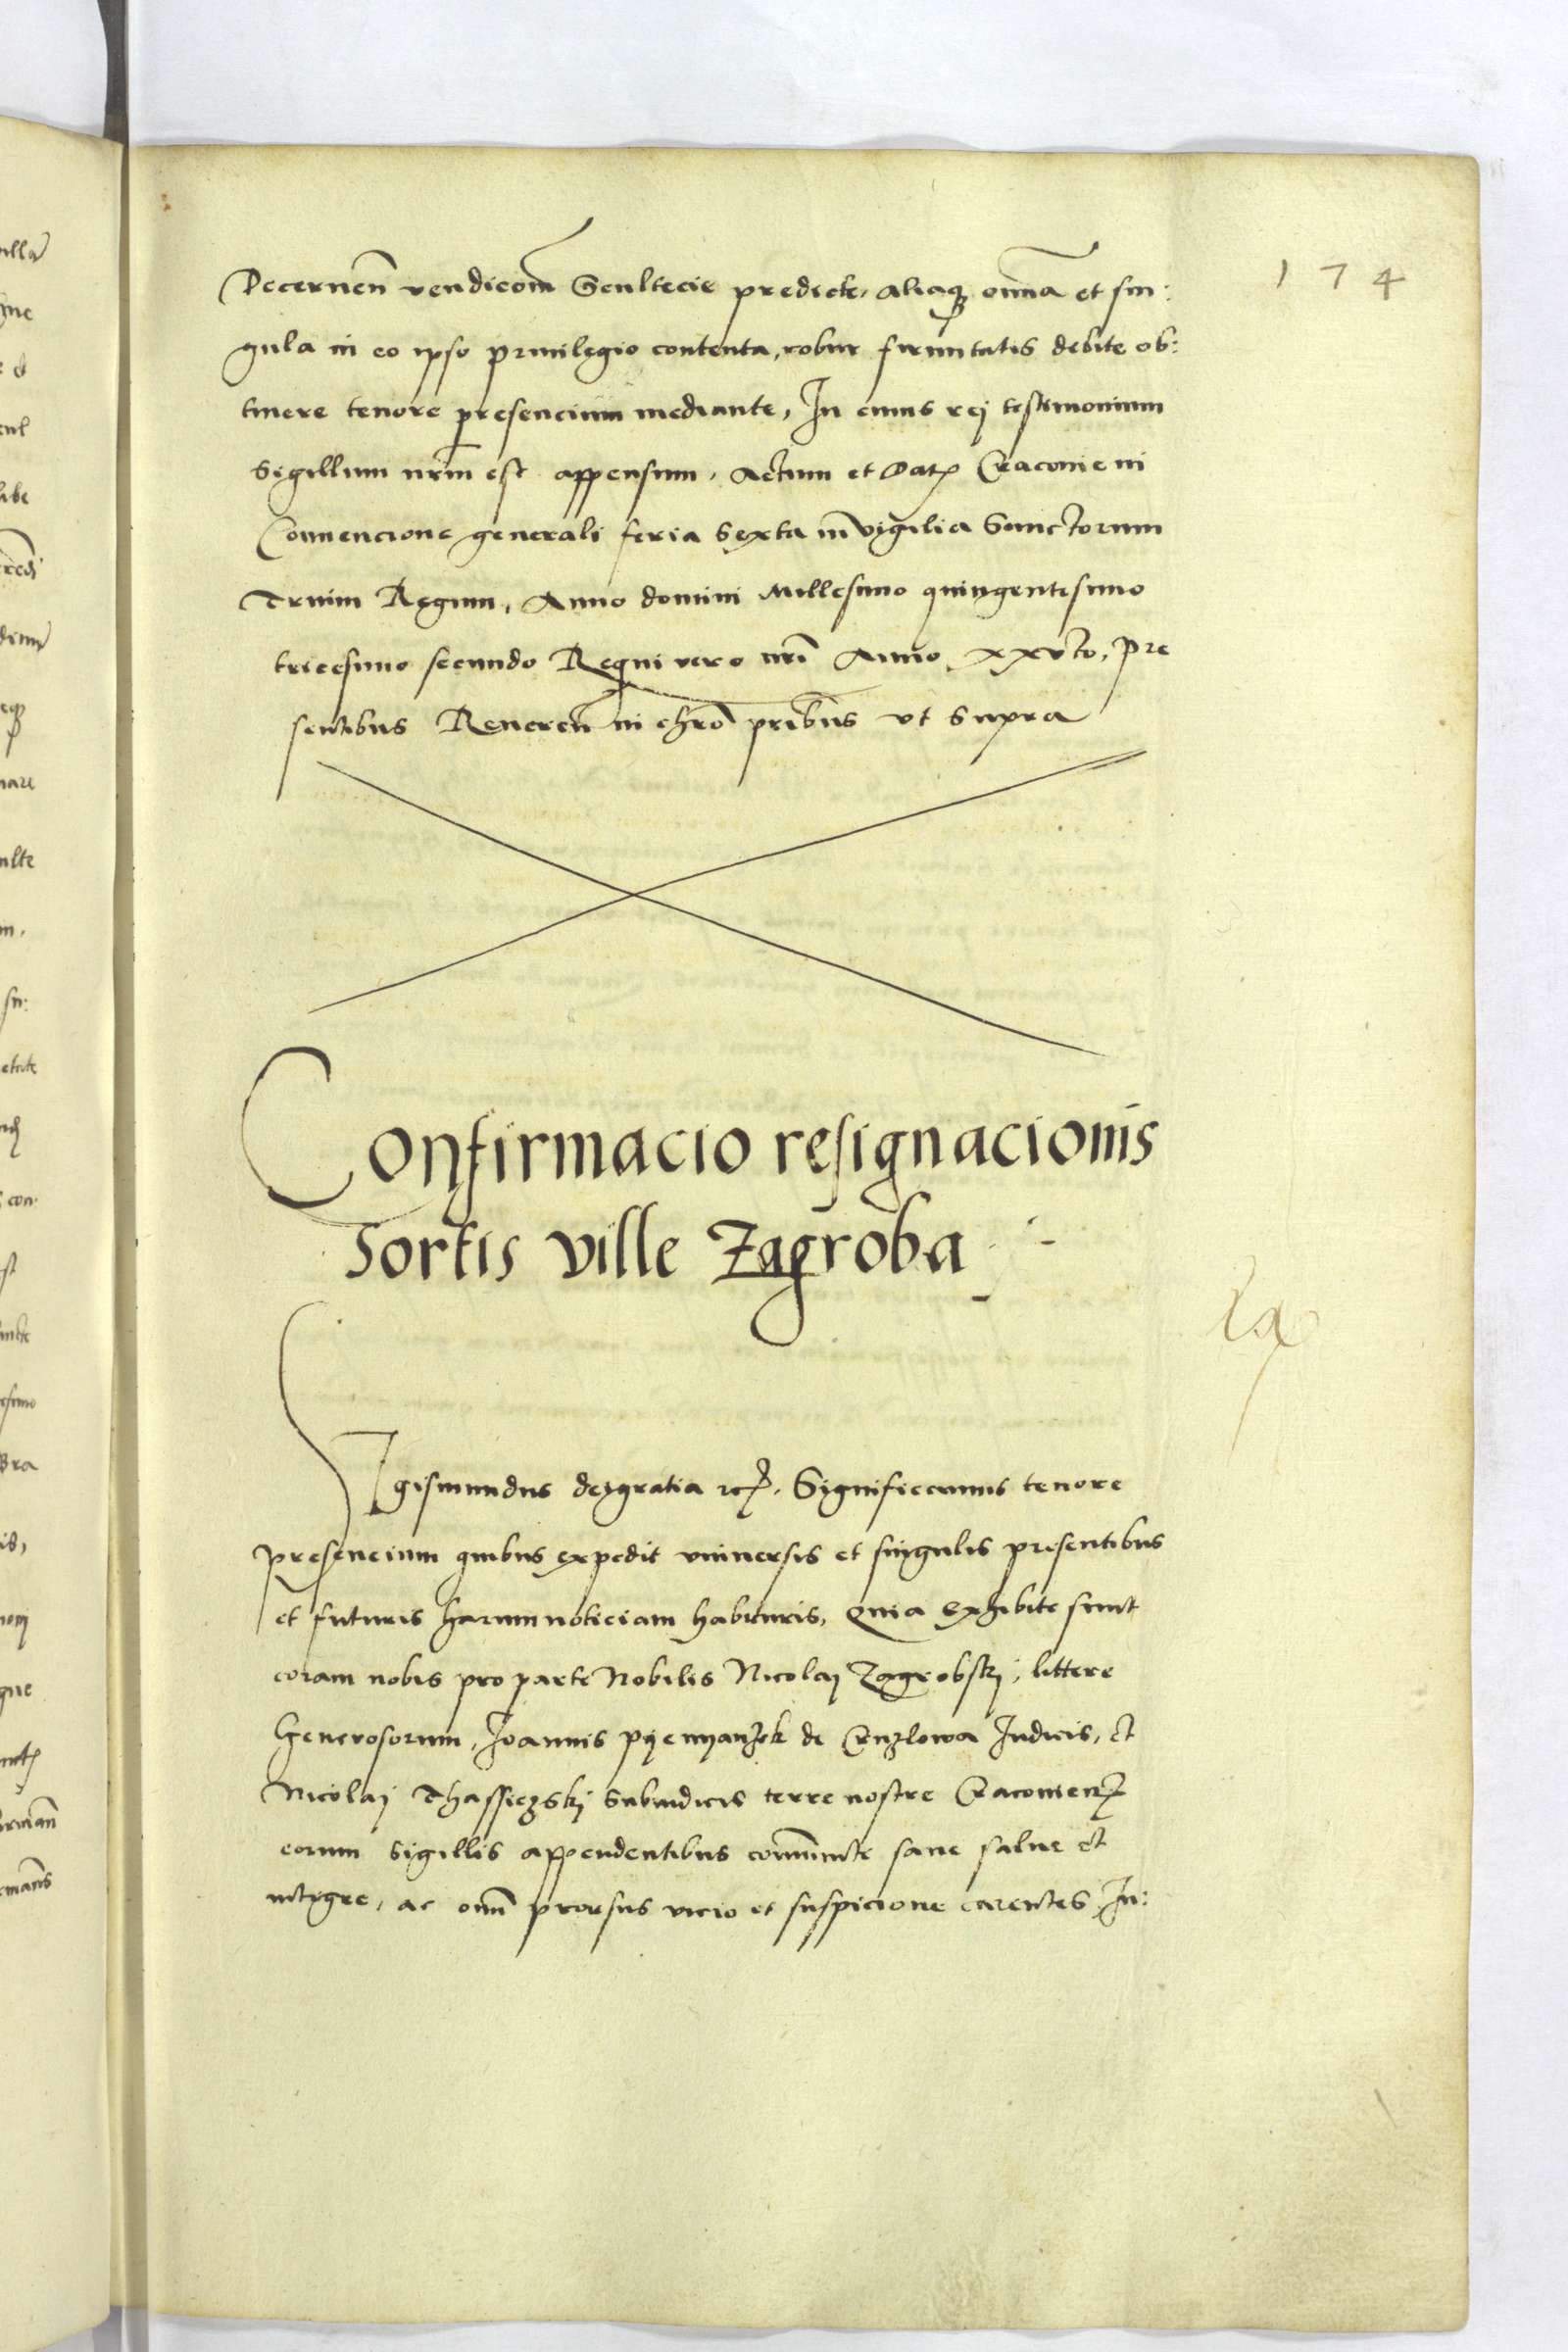 174
Decernen vendicom Scultecie predicte, aliaq omnia et sin:
gula in eo ipso privilegio contenta, robur firmitatis debite ob:
tinere tenore presencium mediante, In cuius rej testimonium
Sigillum nrm est appensum, Actum et Dat Cracovie in
Convencione generali feria Sexta in vigilia Sanctorum
Trium Regum, Anno domini Millesimo quingentesimo
tricesimo secundo Regni vero nri Anno xxvto, Pre
sentibus Reveren in chro pribus vt supra
Confirmacio resignacionis
Sortis ville Zagroba
SIgismundus dej gratia rc, Significamus tenore
presencium quibus expedit vniversis et singulis presentibus
et futuris harum noticiam habituris, Quia Exhibite sunt
coram nobis pro parte Nobilis Nicolaj Zagrobskj, littere
Generosorum, Joannis pyenyanzek de Cruzlowa Judicis, et
Nicolaj Thassiczskj Subiudicis terre nostre Cracovien
eorum sigillis appendentibus comunite sane salve et
integre, ac omni prorsus vicio et suspicione carentes In: